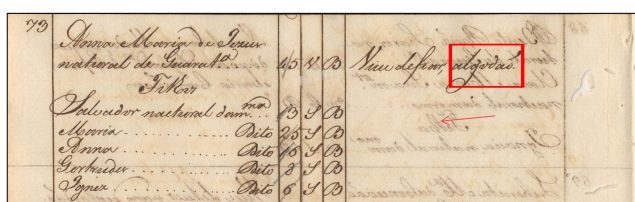 173
Anna Maria de Jezus
natural de Guarat.ª 45 V B Vive de fiar, algodaõ.
Filhos
Salvador natural da m.ma 13 S B
Maria Dito 25 S B
Anna Dito 16 S B
Gertrudes Dito 8 S B
Ignez Dito 6 S B